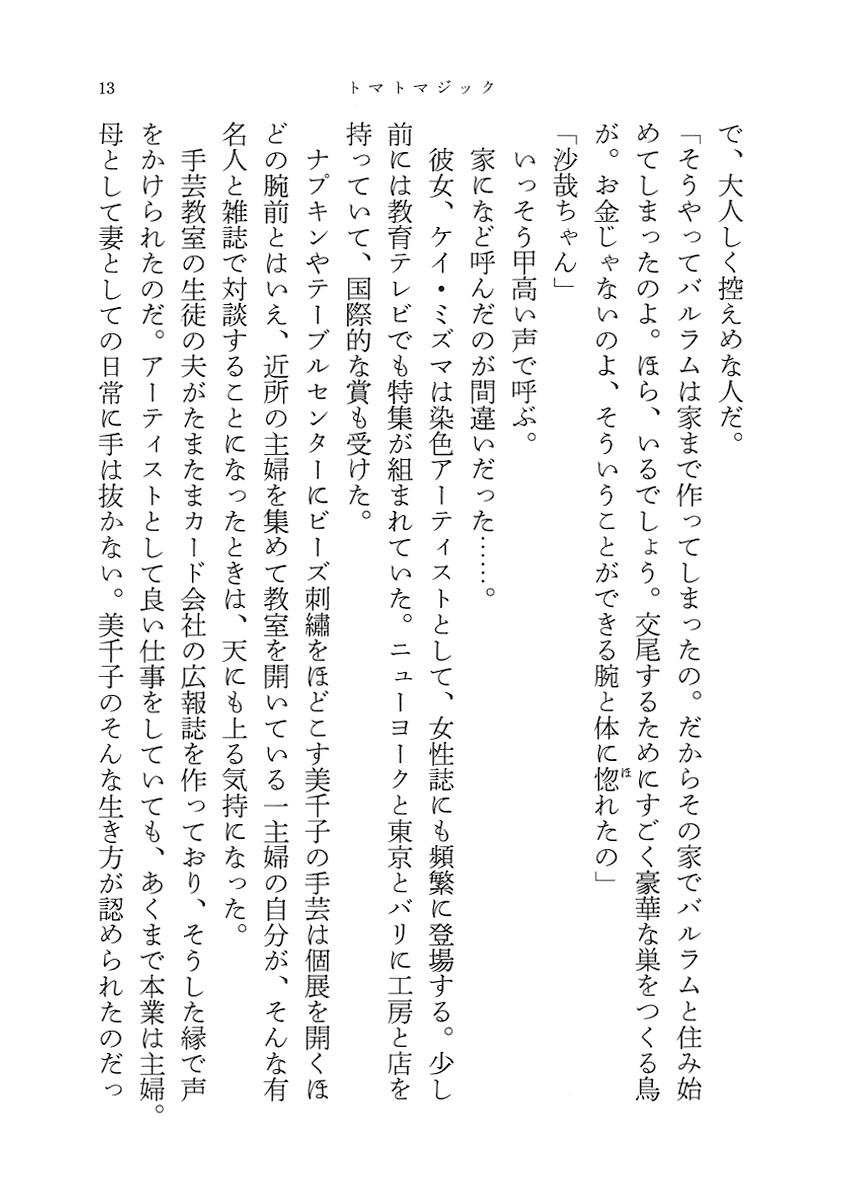 13
トマトマジック
で、大人しく控えめな人だ。
「そうやってバルラムは家まで作ってしまったの。だからその家でバルラムと住み始
めてしまったのよ。ほら、いるでしょう。交尾するためにすごく豪華な巣をつくる鳥
が。お金じゃないのよ、そういうことができる腕と体に惚れたの」
「沙哉ちゃん」
いっそう甲高い声で呼ぶ。
家になど呼んだのが間違いだった……。
彼女、ケイ・ミズマは染色アーティストとして、女性誌にも頻繁に登場する。少し
前には教育テレビでも特集が組まれていた。ニューヨークと東京とバリに工房と店を
持っていて、国際的な賞も受けた。
ナプキンやテーブルセンターにビーズ刺繡をほどこす美千子の手芸は個展を開くほ
どの腕前とはいえ、近所の主婦を集めて教室を開いている一主婦の自分が、そんな有
名人と雑誌で対談することになったときは、天にも上る気持になった。
手芸教室の生徒の夫がたまたまカード会社の広報誌を作っており、そうした縁で声
をかけられたのだ。アーティストとして良い仕事をしていても、あくまで本業は主婦。
母として妻としての日常に手は抜かない。美千子のそんな生き方が認められたのだっ
ほ